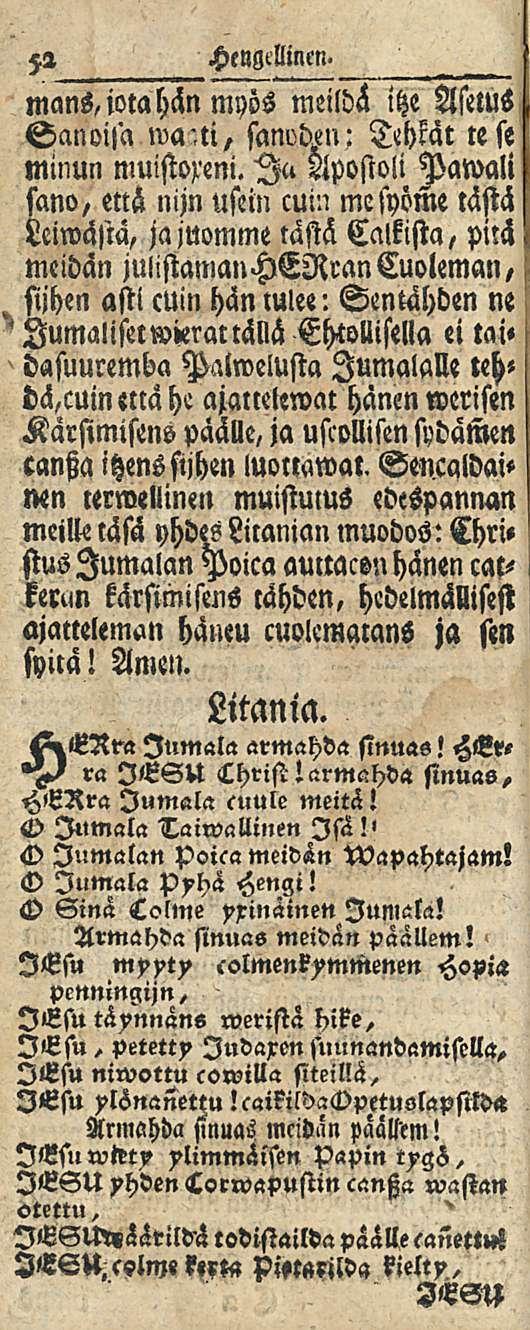 52 Hengellinen.
mans, jota hän myös meildä itze Asetus
Sanoisa waati, sanoden: Tehkät te se
minun muistoxeni. Ja Apostoli Pawali
sano, että nijn usein cuin me syöm̃e tästä
Leiwästä, ja juomme tästä Calkista, pitä
meidän julistaman HERran Cuoleman,
sijhen asti cuin hän tulee: Sentähden ne
Jumaliset wierat tällä Ehtollisella ei tai-
da suuremba Palwelusta Jumalalle teh-
dä, cuin että he ajattelewat hänen werisen
Kärsimisens päälle, ja uscollisen sydäm̃en
canßa itzens sijhen luottawat. Sencaldai-
nen terwellinen muistutus edespannan
meille täsä yhdes Litanian muodos: Chri-
stus Jumalan Poica auttacon hänen cat-
keran kärsimisens tähden, hedelmällisest
ajatteleman häneu cuolematans ja sen
syitä! Amen.
Litania.
HERra Jumala armahda sinuas! HEr-
ra JESU Christ! armahda sinuas,
HERra Jumala cuule meitä!
O Jumala Taiwallinen Isä!
O Jumalan Poica meidän Wapahtajam!
O Jumala Pyhä Hengi!
O Sinä Colme yxinäinen Jumala!
Armahda sinuas meidän päällem!
JEsu myyty colmenkymmenen Hopia
penningijn,
JEsu täynnäns weristä hike,
JEsu, petetty Judaxen suunandamisella,
JEsu niwottu cowilla siteillä,
JEsu ylönañettu! caikilda Opetuslapsilda
Armahda sinuas meidän päällem!
JEsu wiety ylimmäisen Papin tygö,
JESU yhden Corwapustin canßa wastan
otettu,
JESU wäärildä todistailda päälle cañettu!
JESU, colme kerta Pietarilda kielty,
JESU